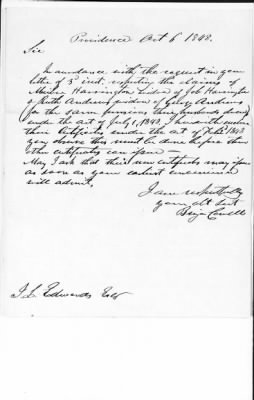 Providence Oct 6 1848.
Sir
In accordance with the request in your
letter of 3d inst. respecting the claims of
Harrington widow of Job Harrington
& Ruth Andrews widow of George Andrews
(for the same pensions their husbands drew)
under the act of July 1, 1848, I herewith enclose
their Certificates under the act of Feby 1843
you this must be done before the
other certificates can issue —
May I ask that their new certificates may issue
as soon as your earliest convenience
will admit.
I am respectfully
your obt Servt
Benj Cowell
J. L. Edwards Esqr